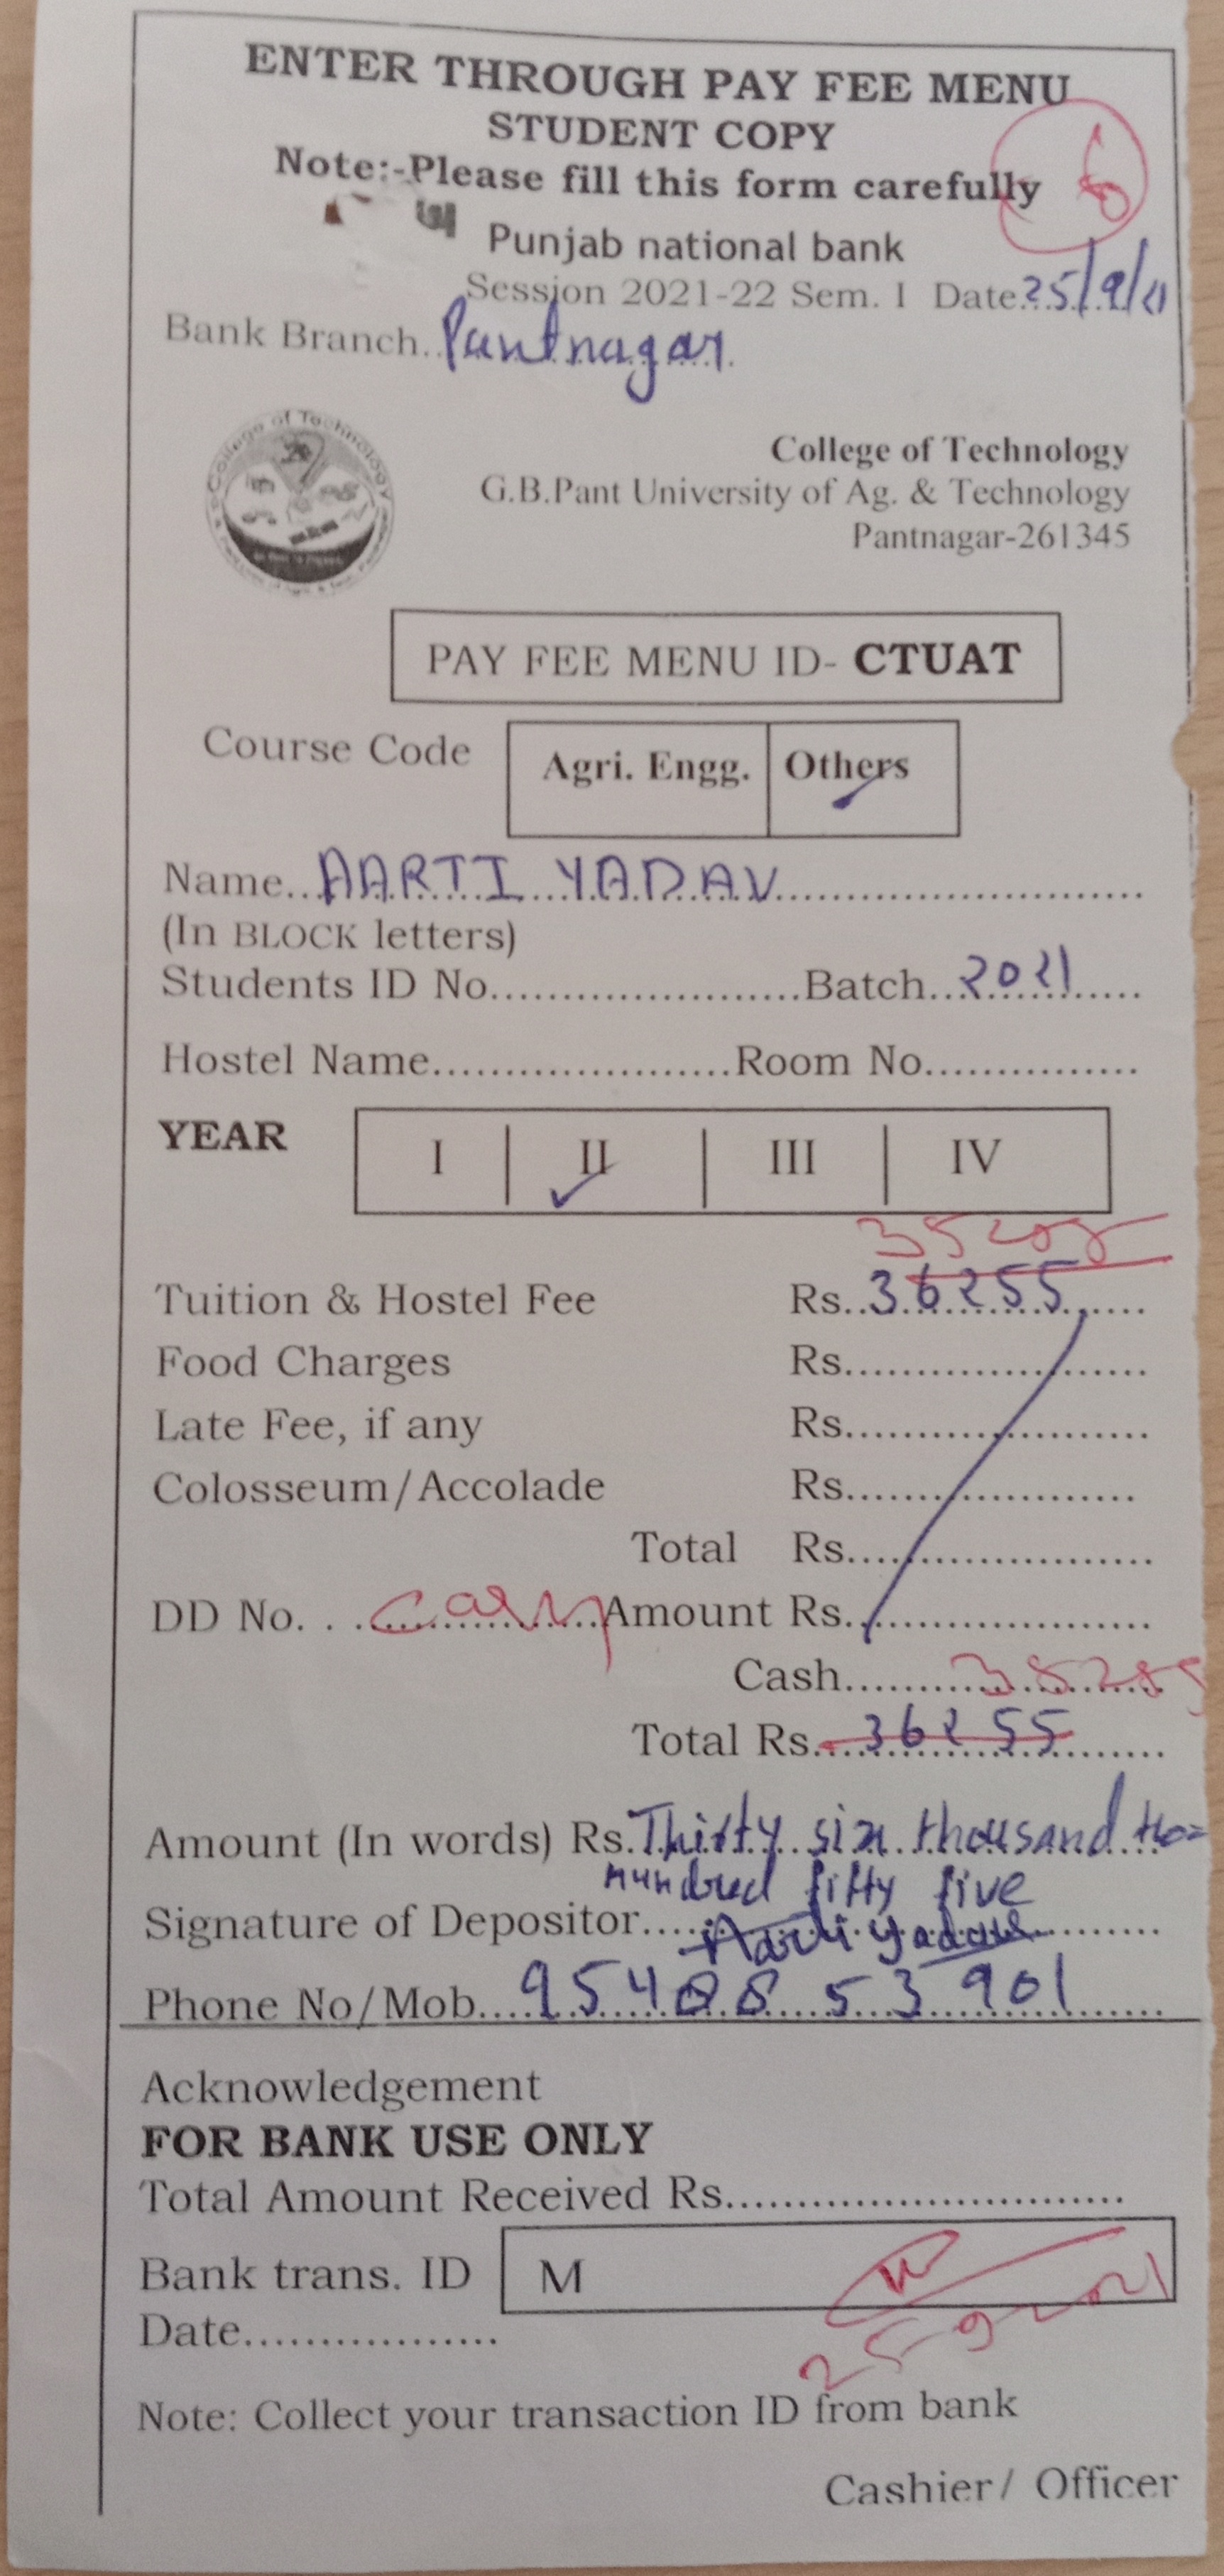 ENTER THROUGH PAY FEE MENU
STUDENT COPY
Note:-Please fill this form carefully
Punjab national bank
Session 2021-22 Sem. I Date.25/9/21
Bank Branch..Pantnagar.
College of Technology
G.B.Pant University of Ag. & Technology
Pantnagar-261345
PAY FEE MENU ID- CTUAT
Course Code Agri. Engg. Others
Name..AARTI YADAV..........................
(In BLOCK letters)
Students ID No......................Batch...2021.....
Hostel Name.....................Room No...............
YEAR I II III IV
Tuition & Hostel Fee Rs..36255......
Food Charges Rs.....................
Late Fee, if any Rs.....................
Colosseum/Accolade Rs....................
Total Rs.....................
DD No. . ...................Amount Rs.....................
Cash..........
Total Rs....36255........
Amount (In words) Rs.Thirty six thousand two
hundred fifty five
Signature of Depositor....Aarti Yadav..........
Phone No/Mob....9548853901......
Acknowledgement
FOR BANK USE ONLY
Total Amount Received Rs............................
Bank trans. ID M
25-9-2021
Date..................
Note: Collect your transaction ID from bank
Cashier/ Officer